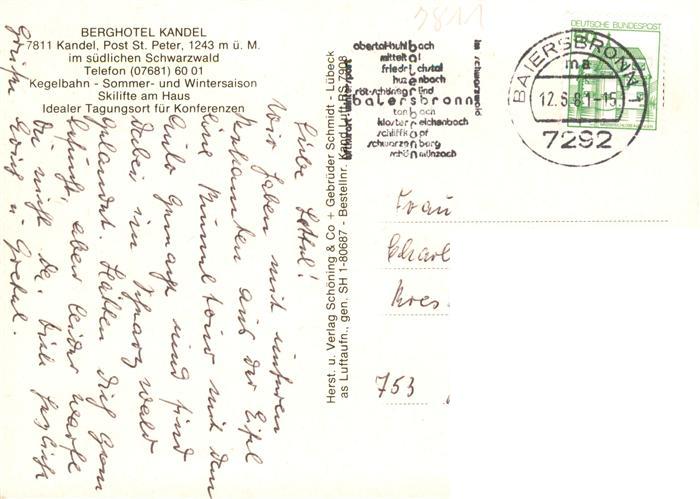 BERGHOTEL KANDEL
7811 Kandel, Post St. Peter, 1243 m ü. M.
im südlichen Schwarzwald
Telefon (07681) 60 01
Kegelbahn - Sommer- und Wintersaison
Skilifte am Haus
Idealer Tagungsort für Konferenzen
Liebe Lottel!
Wir haben mit unseren
Bekannten aus der Eifel
eine Rundtour mit dem
Auto gemacht und sind
dabei im Schwarzwald
gelandet. Hätten dich gern
besucht, aber leider warst
Du nicht da. Viele herzliche
Grüße Gretel.
Herst. u. Verlag Schöning & Co + Gebrüder Schmidt - Lübeck
as Luftaufn., gen. SH 1-80687 - Bestellnr. Kand Luft RS 7908
5811
obertal-buhlbach
mitteltal
friedrichstal
huzenbach
röt-schönegründ
baiersbronn
tonbach
klosterreichenbach
schliffkopf
schwarzenberg
schönmünzach
im schwarzwald
BAIERSBRONN 1
ma
12.6.81-15
7292
DEUTSCHE BUNDESPOST
Frau
Charl
Kres
753